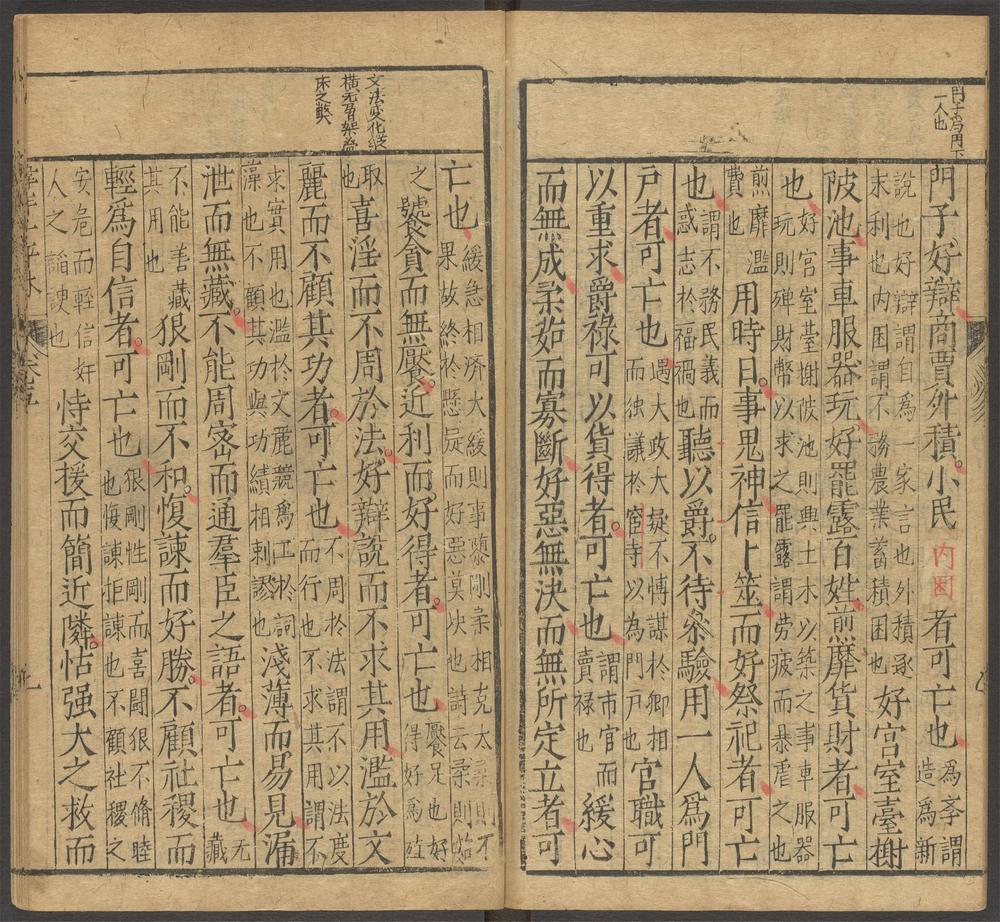 門子為門下
一人也
門子好辯商賈外積小民内困者可亡也為孝謂造為新
說也好辯謂自為一家言也外積逐末利也内困謂不務農業蓄積困也好宮室臺榭
陂池事車服器玩好罷露百姓煎靡貨財者可亡
也好宮室臺榭陂池則興土木以築之事車服器玩則殫財幣以求之罷露謂勞疲而暴虐之也
煎靡濫費也用時日事鬼神信卜筮而好祭祀者可亡
也謂不務民義而惑志於福禍也聽以爵不待參驗用一人為門
戶者可亡也遇大政大疑不博謀於卿相而独議於宦寺以為門戸也官職可
以重求爵祿可以貨得者可亡也謂市官而賣禄也緩心
而無成柔茹而寡斷好惡無決而無所定立者可
文法変化縱
橫
床之獘
亡也緩急相濟大緩則事隳剛柔相克太柔則不果故終於懸疑而好惡莫决也詩云柔則茹
之饕貪而無饜近利而好得者可亡也饜足也好得好為
取也喜淫而不周於法好辯說而不求其用濫於文
麗而不顧其功者可亡也不周於法謂不以法度而行也不求其用謂不
求實用也濫於文麗競為工於詞藻也不顧其功與功績相剌謬也淺薄而易見漏
泄而無藏不能周密而通羣臣之語者可亡也无藏
不能善藏其用也狠剛而不和愎諫而好勝不顧社稷而
輕為自信者可亡也狠剛性剛而喜鬪狠不脩睦也愎諫拒諫也不顧社稷之
安危而輕信好人之謟諛也恃交援而簡近隣怙强大之救而